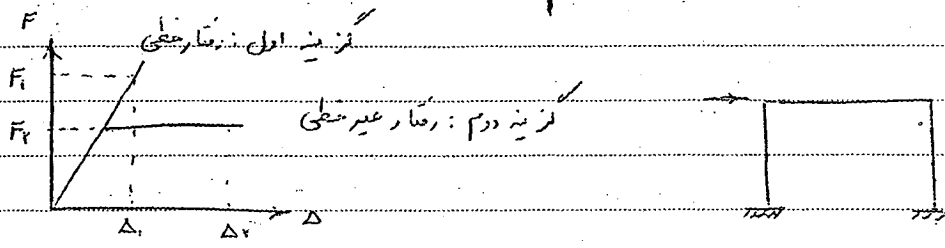 F
گزینه اول : رفتار خطی
F₁
F₂
گزینه دوم : رفتار غیر خطی
Δ
Δ₁
Δ₂